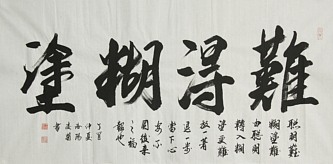 難得糊塗
聰明難
糊塗難
由聰明
轉入糊
塗更難
放一著
退一步
當下心
安
圖後来
之福
報也
仲夏
書